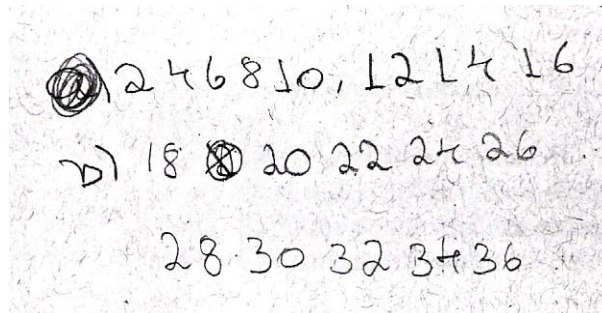 a) 2 4 6 8 10, 12 14 16
b) 18 20 22 24 26
28 30 32 34 36